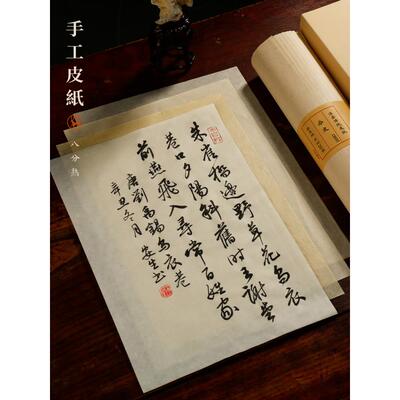 手工皮紙
八分熟
朱雀橋邊野草花烏衣
巷口夕陽斜舊時王謝堂
前燕飛入尋常百姓家
唐劉禹錫烏衣巷
辛丑冬月 安生書